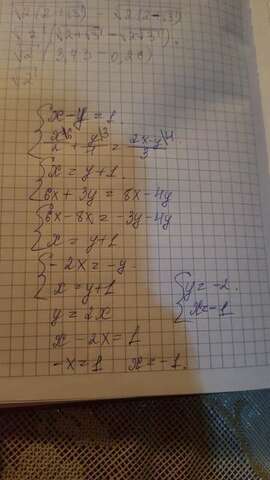 x - y = 1
x\6/2 + y\3/4 = 2x-y\4/3
x = y+1.
6x + 3y = 8x - 4y
6x - 8x = -3y - 4y
x = y+1
-2x = -y.
x = y+1
y = 2x
x - 2x = 1
-x = 1 x = -1.
y = -2.
x = -1